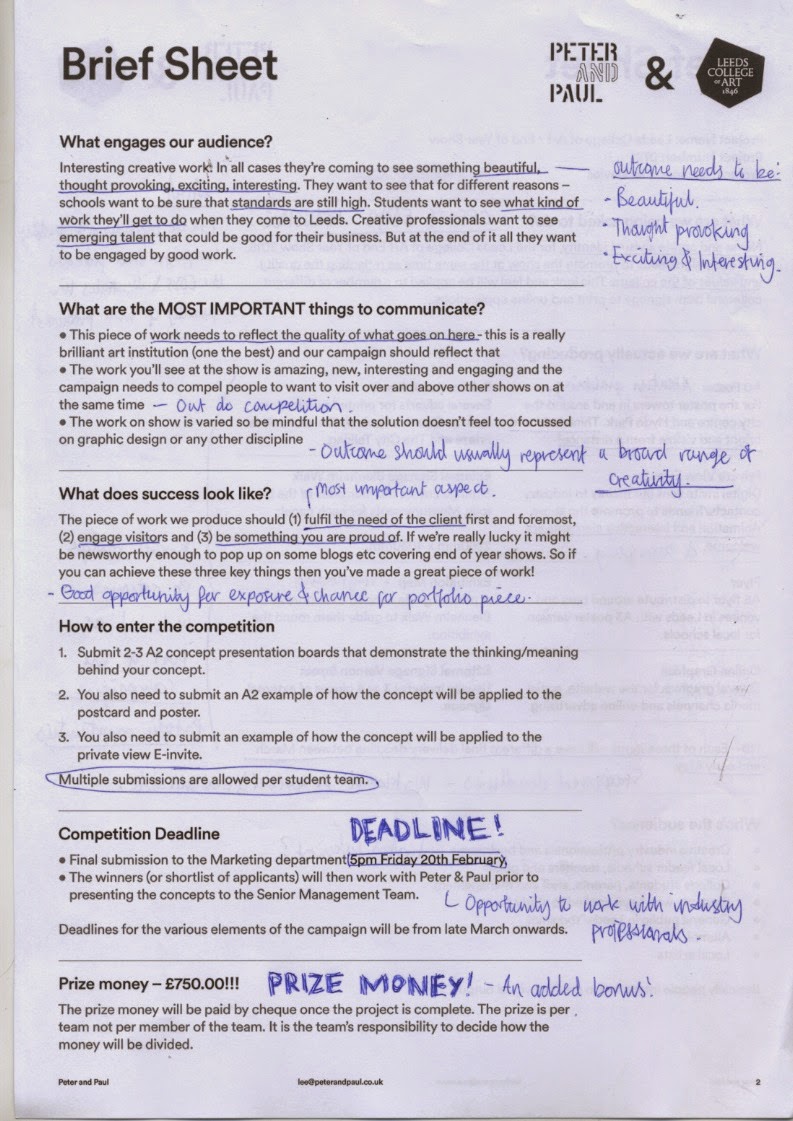 Brief Sheet
PETER
AND
PAUL
&
LEEDS
COLLEGE
OF ART
1846
What engages our audience?
Interesting creative work! In all cases they're coming to see something beautiful,
thought provoking, exciting, interesting. They want to see that for different reasons –
schools want to be sure that standards are still high. Students want to see what kind of
work they'll get to do when they come to Leeds. Creative professionals want to see
emerging talent that could be good for their business. But at the end of it all they want
to be engaged by good work.
outcome needs to be:
- Beautiful.
• Thought provoking
• Exciting & Interesting.
What are the MOST IMPORTANT things to communicate?
• This piece of work needs to reflect the quality of what goes on here - this is a really
brilliant art institution (one the best) and our campaign should reflect that
• The work you'll see at the show is amazing, new, interesting and engaging and the
campaign needs to compel people to want to visit over and above other shows on at
the same time – Out do competition.
• The work on show is varied so be mindful that the solution doesn't feel too focussed
on graphic design or any other discipline
- Outcome should usually represent a broad range of
creativity.
What does success look like?
Most important aspect.
The piece of work we produce should (1) fulfil the need of the client first and foremost,
(2) engage visitors and (3) be something you are proud of. If we're really lucky it might
be newsworthy enough to pop up on some blogs etc covering end of year shows. So if
you can achieve these three key things then you've made a great piece of work!
- Good opportunity for exposure & chance for portfolio piece.
How to enter the competition
1. Submit 2-3 A2 concept presentation boards that demonstrate the thinking/meaning
behind your concept.
2. You also need to submit an A2 example of how the concept will be applied to the
postcard and poster.
3. You also need to submit an example of how the concept will be applied to the
private view E-invite.
Multiple submissions are allowed per student team.
Competition Deadline
DEADLINE!
• Final submission to the Marketing department 5pm Friday 20th February,
• The winners (or shortlist of applicants) will then work with Peter & Paul prior to
presenting the concepts to the Senior Management Team.
Opportunity to work with industry
professionals -
Deadlines for the various elements of the campaign will be from late March onwards.
Prize money – £750.00!!!
PRIZE MONEY! - An added bonus!
The prize money will be paid by cheque once the project is complete. The prize is per
team not per member of the team. It is the team's responsibility to decide how the
money will be divided.
Peter and Paul
lee@peterandpaul.co.uk
2